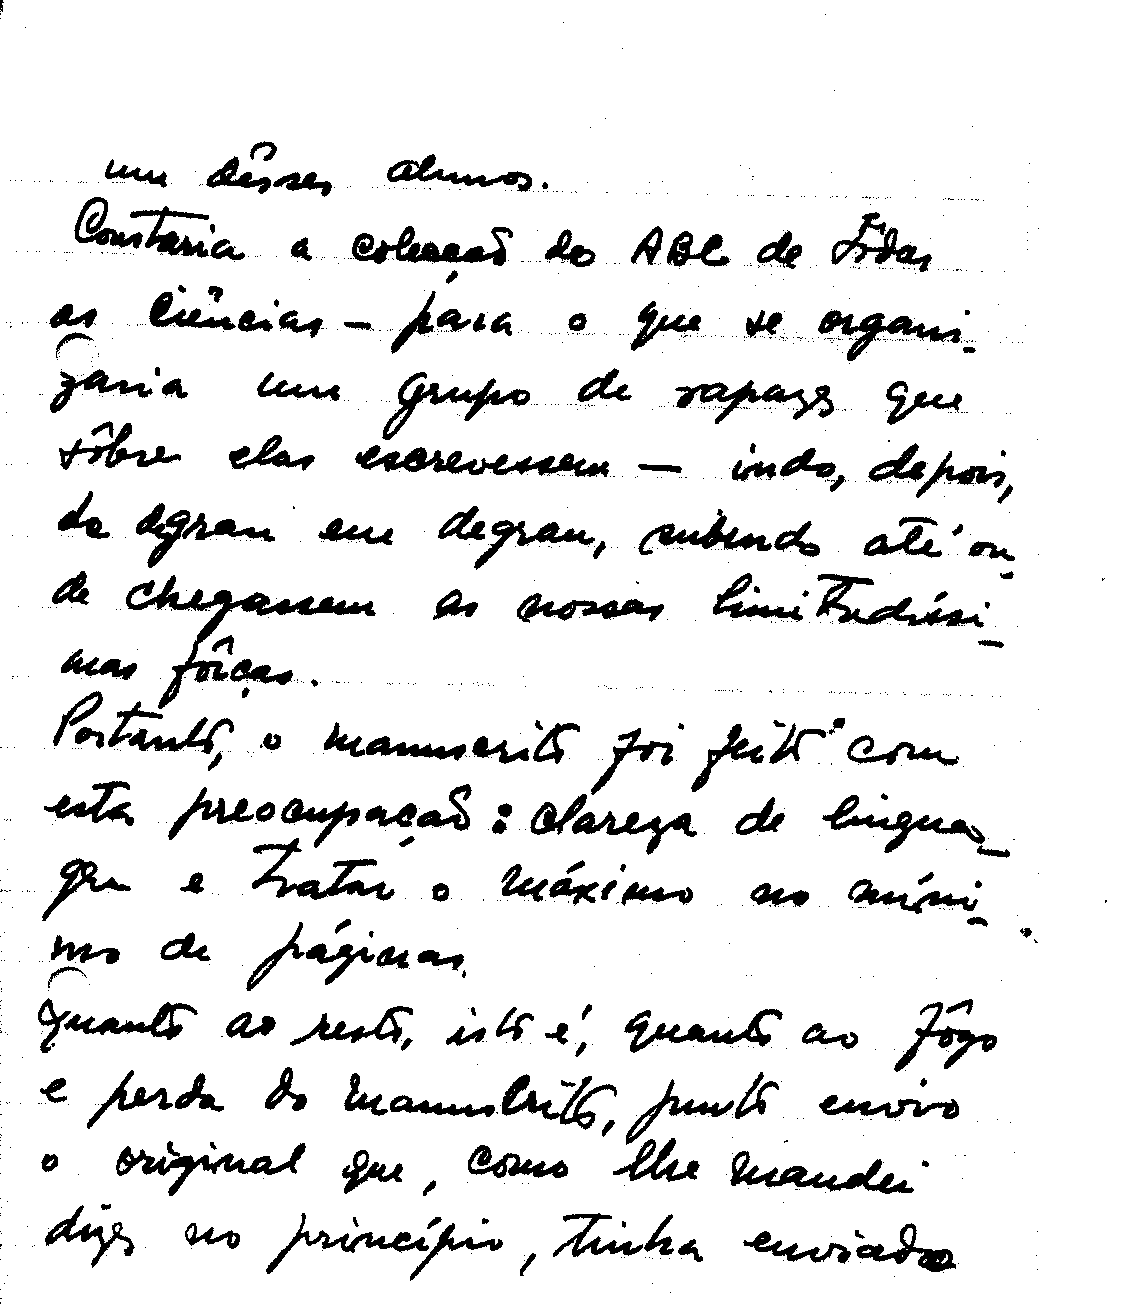 um dêsses alunos.
Constaria a colecção do ABC de Tôdas
as Ciências – para o que se organi-
zaria um grupo de rapazes que
sôbre elas escrevessem — indo, depois,
de degrau em degrau, subindo até on-
de chegassem as nossas limitadíssi-
mas fôrças.
Portanto, o manuscrito foi feito com
esta preocupação: clareza de lingua-
gem e tratar o máximo no míni-
mo de páginas.
Quanto ao resto, isto é, quanto ao fôgo
e perda do manuscrito, junto envio
o original que, como lhe mandei
dizer no princípio, tinha enviado